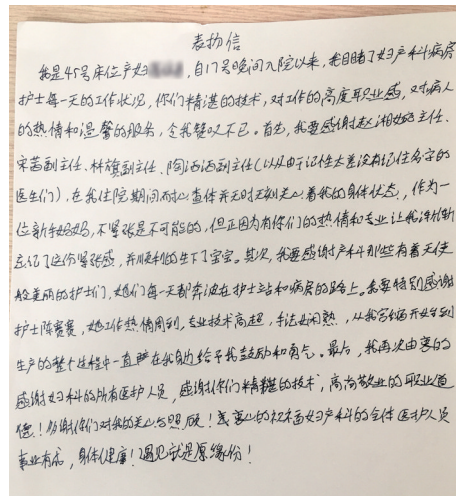 表扬信
我是45号床位产妇 ，自17号晚间入院以来，我目睹了妇产科病房
护士每一天的工作状况，你们精湛的技术，对工作的高度职业感，对病人
的热情和温馨的服务，令我赞叹不已。首先，我要感谢赵湘 主任、
宋茜副主任、林旗副主任、陶洒洒副主任（以及由于记性太差没有记住名字的
医生们），在我住院期间 查体并无时无刻关心着我的身体状态，作为一
位新手妈妈，不紧张是不可能的，但正因为有你们的热情和专业让我渐渐
忘记了这份紧张感，并顺利的生下了宝宝。其次，我要感谢产科那些有着天使
般美丽的护士们，她们每一天都奔波在护士站和病房的路上。我要特别感谢
护士陈赛赛，她工作热情周到，专业技术高超，手法娴熟，从我宫缩开始到
生产的整个过程中一直 在我身边给予我鼓励和勇气。最后，我再次由衷的
感谢妇科的所有医护人员，感谢你们精髓的技术，高尚敬业的职业道
德！感谢你们对我的关心与照顾！我衷心的祝福妇产科的全体医护人员
事业有成，身体健康！遇见就是原缘份！